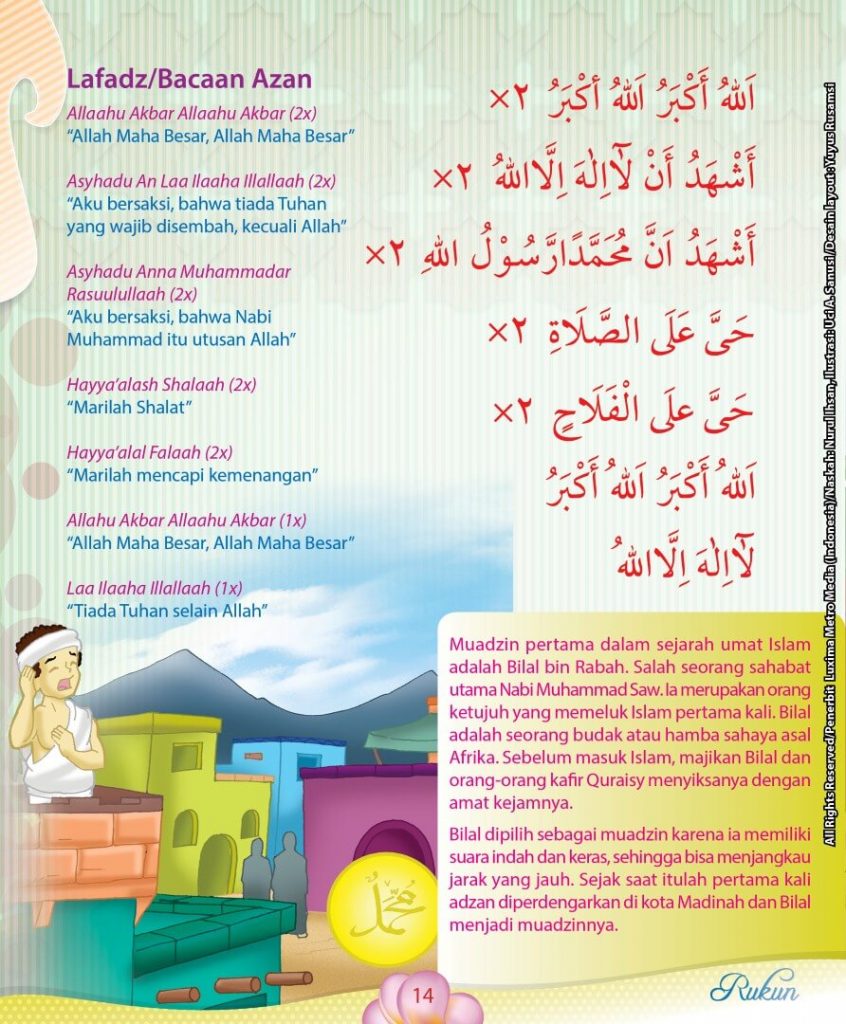 Lafadz/Bacaan Azan
Allaahu Akbar Allaahu Akbar (2x)
“Allah Maha Besar, Allah Maha Besar”
Asyhadu An Laa Ilaaha Illallaah (2x)
“Aku bersaksi, bahwa tiada Tuhan
yang wajib disembah, kecuali Allah”
Asyhadu Anna Muhammadar
Rasuulullaah (2x)
“Aku bersaksi, bahwa Nabi
Muhammad itu utusan Allah”
Hayya’alash Shalaah (2x)
“Marilah Shalat”
Hayya’alal Falaah (2x)
“Marilah mencapi kemenangan”
Allahu Akbar Allaahu Akbar (1x)
“Allah Maha Besar, Allah Maha Besar”
Laa Ilaaha Illallaah (1x)
“Tiada Tuhan selain Allah”
اَللهُ أَكْبَرُ اَللهُ أكْبَرُ ٢×
أَشْهَدُ أَنْ لَآاِلٰهَ اِلَّااللهُ ٢×
أَشْهَدُ اَنَّ مُحَمَّدًارَّسُوْلُ اللهِ ٢×
حَىَّ عَلَى الصَّلَاةِ ٢×
حَىَّ علَى الْفَلَاحٍ ٢×
اَللهُ أَكْبَرُ اَللهُ أَكْبَرُ
لَآاِلٰهَ اِلَّااللهُ
Muadzin pertama dalam sejarah umat Islam
adalah Bilal bin Rabah. Salah seorang sahabat
utama Nabi Muhammad Saw. Ia merupakan orang
ketujuh yang memeluk Islam pertama kali. Bilal
adalah seorang budak atau hamba sahaya asal
Afrika. Sebelum masuk Islam, majikan Bilal dan
orang-orang kafir Quraisy menyiksanya dengan
amat kejamnya.
Bilal dipilih sebagai muadzin karena ia memiliki
suara indah dan keras, sehingga bisa menjangkau
jarak yang jauh. Sejak saat itulah pertama kali
adzan diperdengarkan di kota Madinah dan Bilal
menjadi muadzinnya.
مُحَمَّدٌ
14
Rukun
All Rights Reserved/Penerbit Luxima Metro Media (Indonesia)/Naskah: Nurul Ihsan, Ilustrasi: Uci A. Sanusi /Desain layout: Yuyus Rusamsi